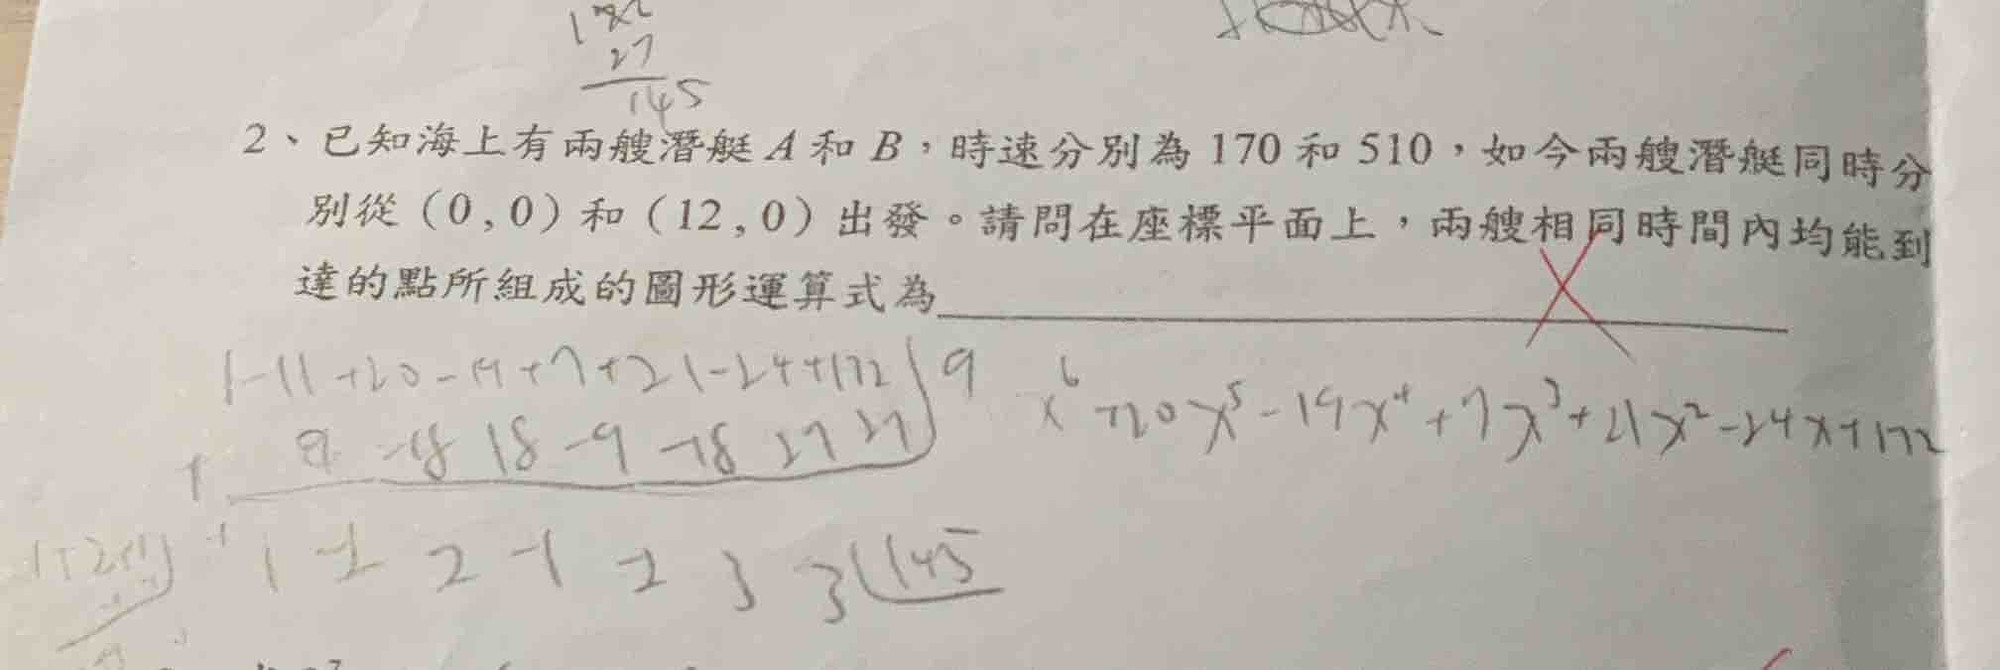 27
145
2、已知海上有兩艘潛艇 A 和 B，時速分別為 170 和 510，如今兩艘潛艇同時分
別從（0,0）和（12,0）出發。請問在座標平面上，兩艘相同時間內均能到
達的點所組成的圖形運算式為
1-11+20-19+7+21-24+172 9
x⁶+20x⁵-19x⁴+7x³+21x²-24x+172
+ 9 -18 18 -9 -18 27 27
1 -2 2 -1 -2 3 3 145